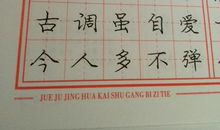 古调虽自爱
今人多不弹
JUE JU JING HUA KAI SHU GANG BI ZI TIE